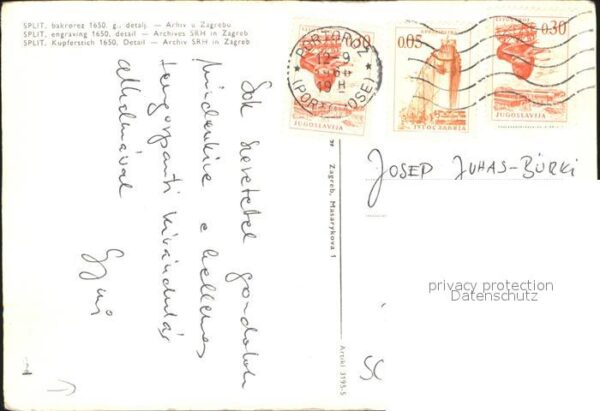 SPLIT, bakrorez 1650. g., detalj. — Arhiv u Zagrebu
SPLIT, engraving 1650, detail — Archives SRH in Zagreb
SPLIT, Kupferstich 1650, Detail — Archiv SRH in Zagreb
Sok szeretettel gondolok
mindenkire a kellemes
tengerparti kirándulás
alkalmával
Gyuri
Zagreb, Masarykova 1
Artiki 3193-S
PORTOROŽ
12-9
19 H
0.30
JUGOSLAVIJA
0.05
JUGOSLAVIJA
0.30
JUGOSLAVIJA
JOSEP JUHAS-BÜRKI
privacy protection
Datenschutz